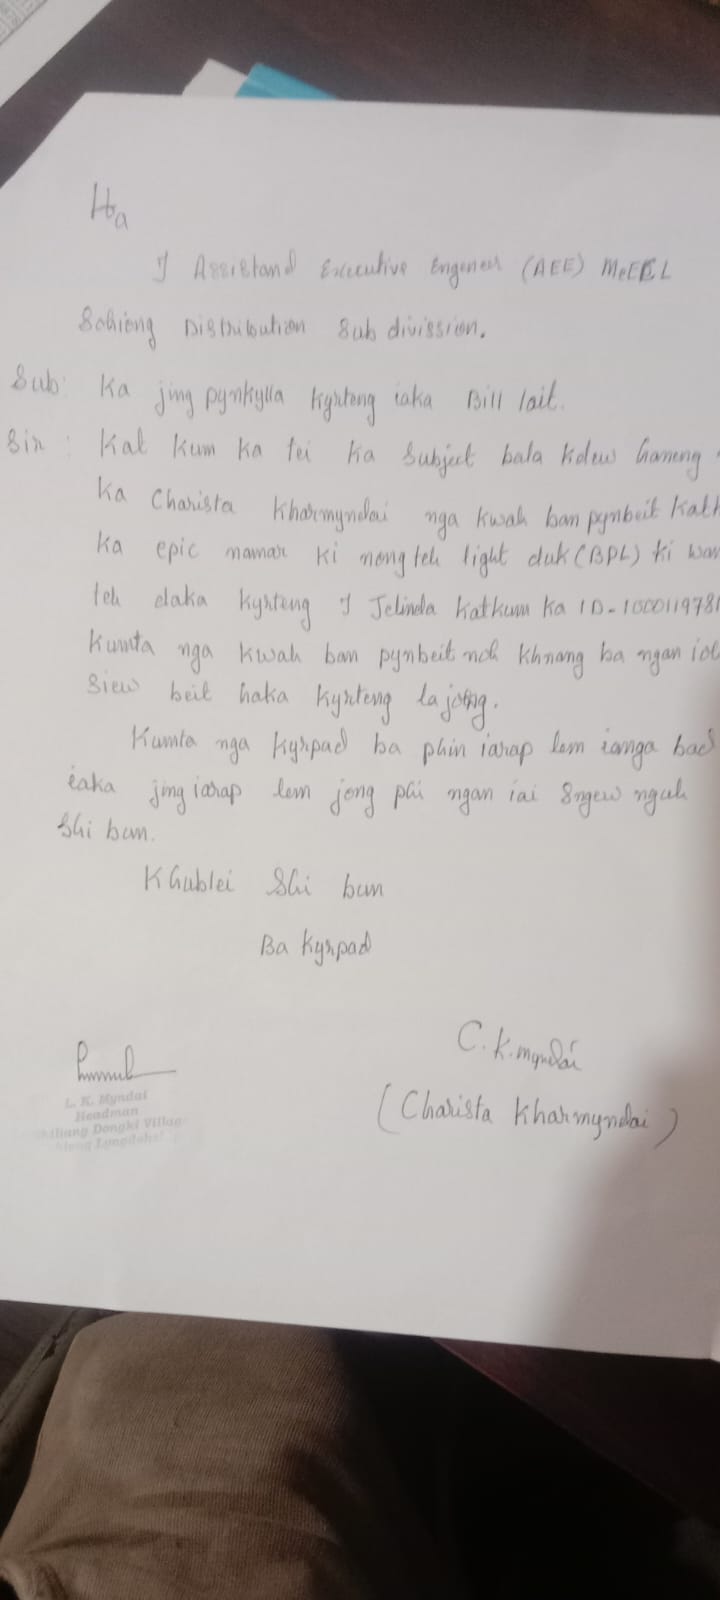 Ha
I Assistand Executive Engeneer (AEE) MeECL
Sohiong Distribution Sub divission.
Sub: Ka jing pynkylla kyrteng iaka Bill lait.
Sir: Kat kum ka tei ka Subject bala kdew haneng
Ka Charista Kharmyndai nga kwah ban pynbeit kat
ka epic namar ki nongteh light duk (BPL) ki
teh daka kyrteng I Jelinda katkum ka ID-
Kumta nga kwah ban pynbeit noh khnang ba ngan
Siew beit haka kyrteng lajong.
Kumta nga kyrpad ba phin iarap lem ianga bad
iaka jing iarap lem jong phi ngan iai Sngew nguh
Shi bun.
Khublei Shi bun
Ba kyrpad
C. K. myndai
(Charista Kharmyndai)
L. K. Myndai
Headman
Dongki Village